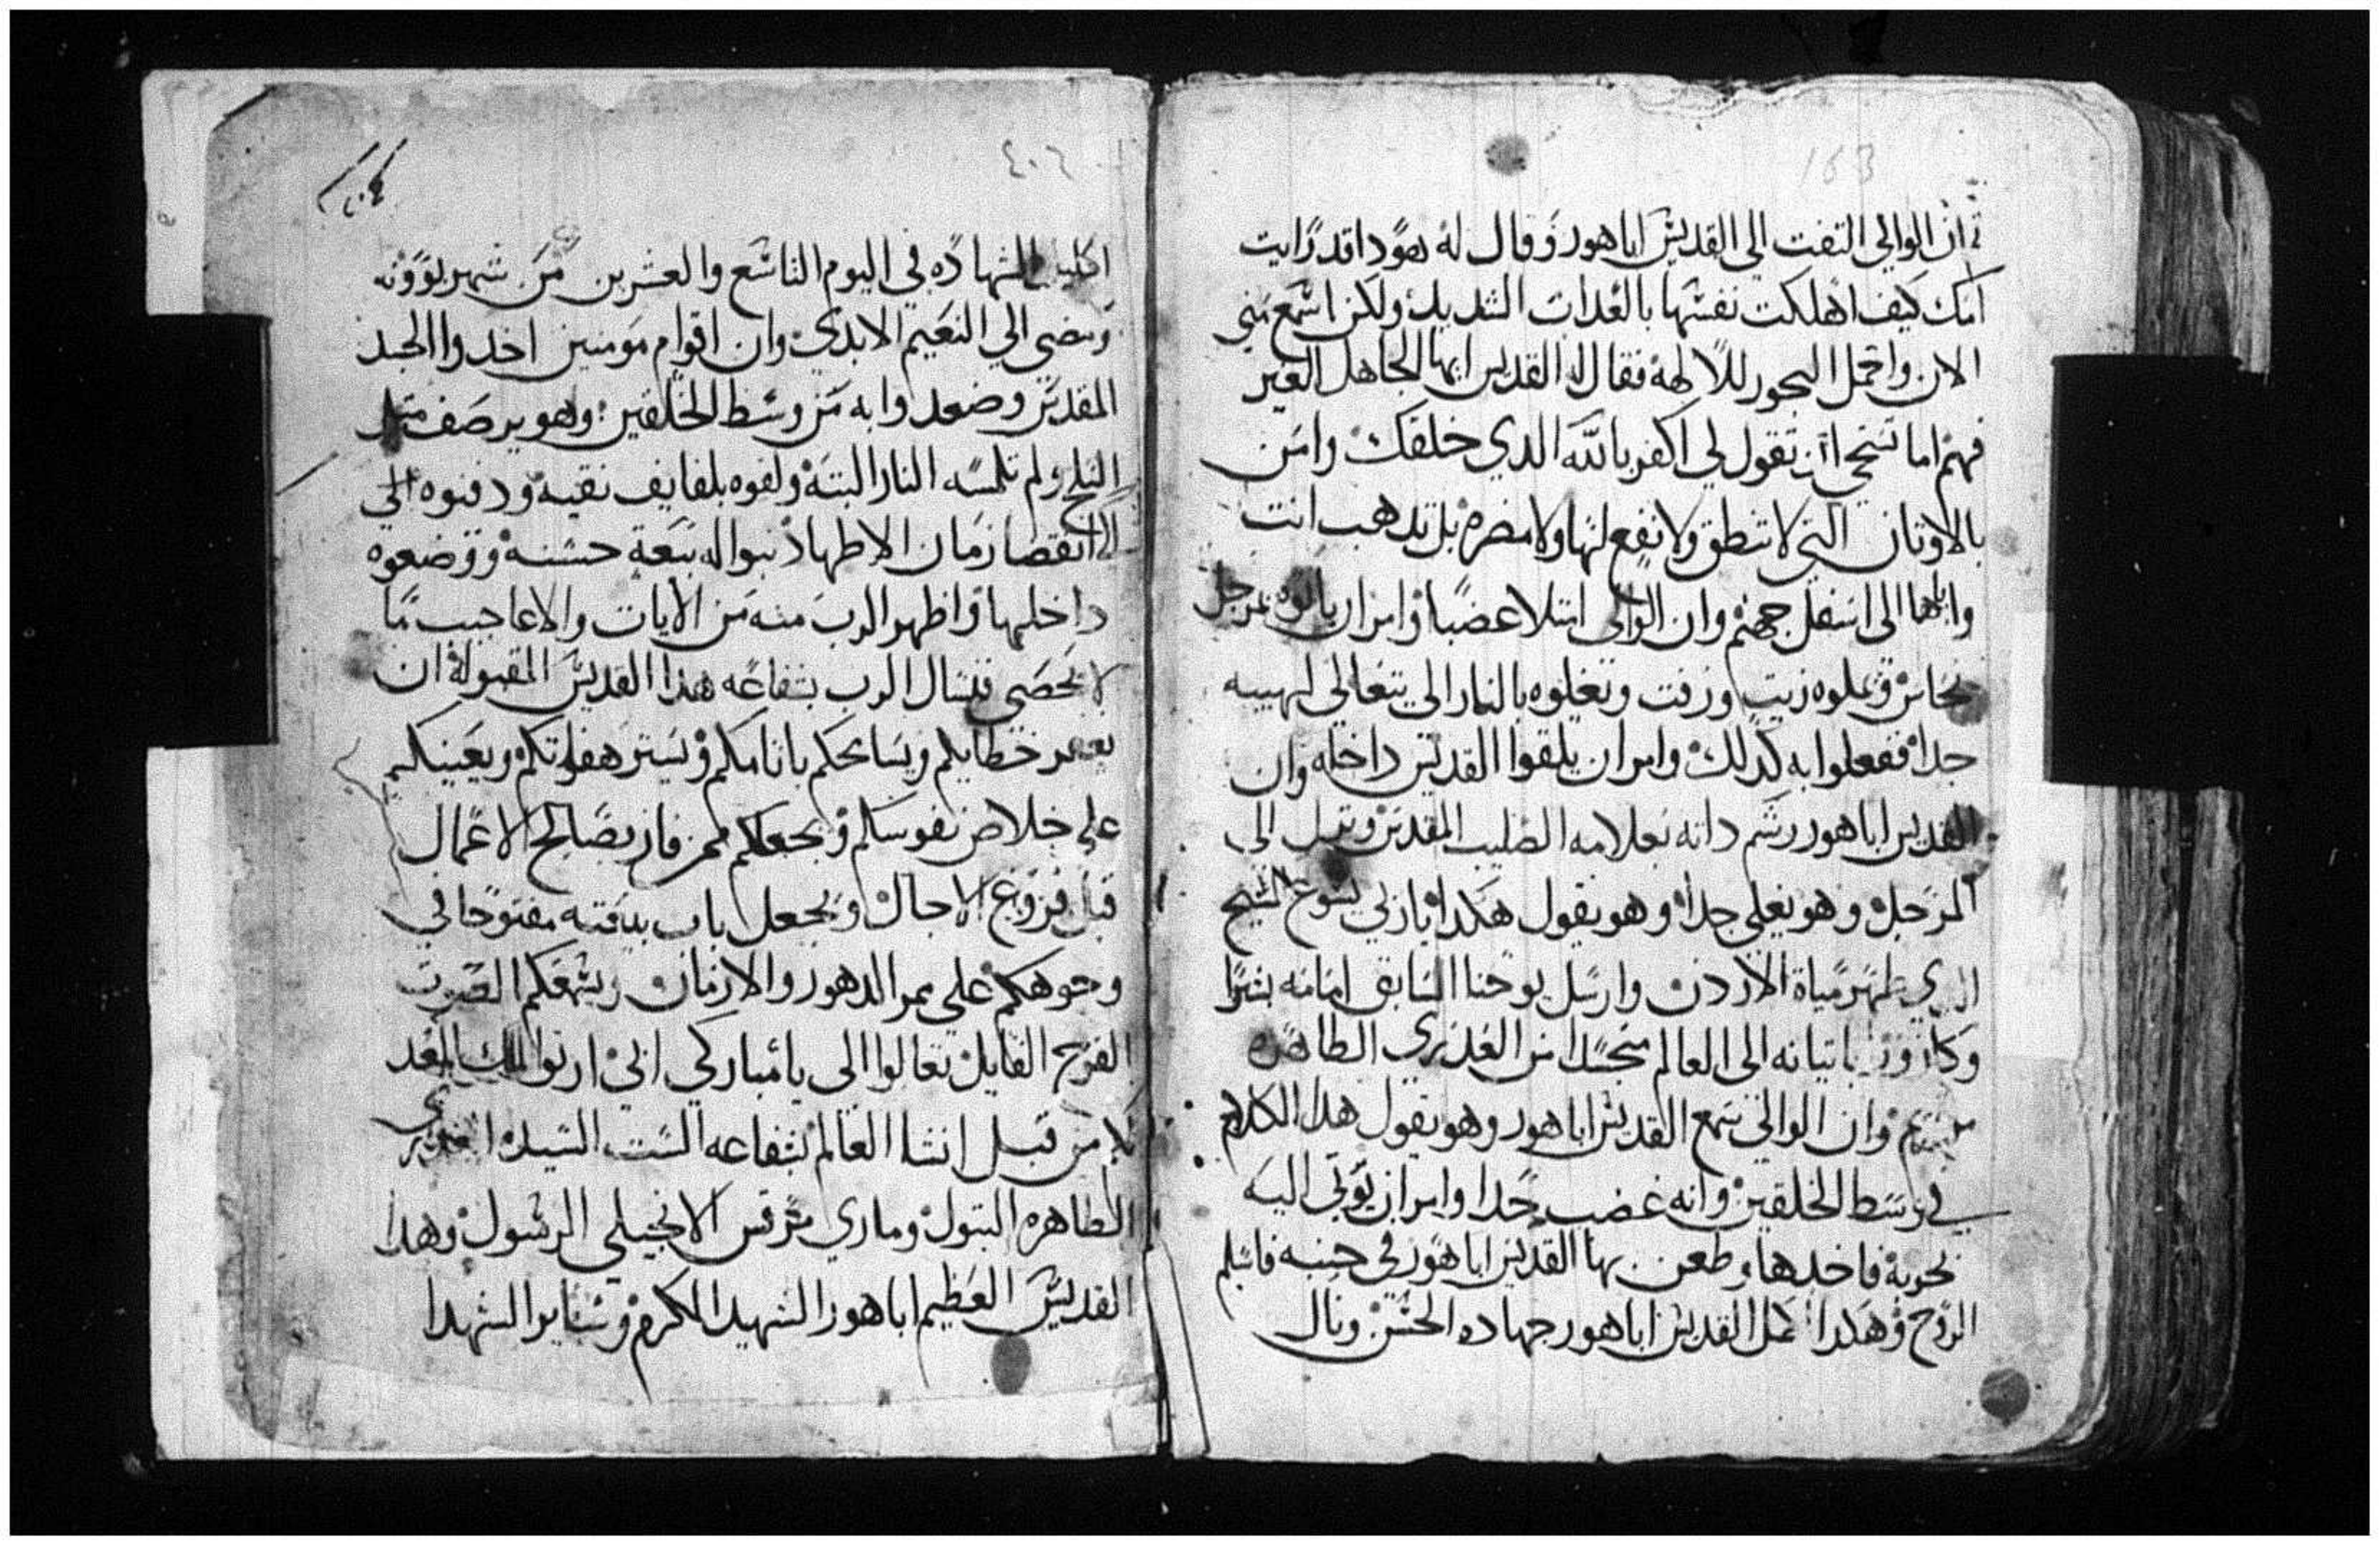 163
ثم ان الوالي التفت الي القديس اباهور وقال له هودا قد رايت
امك كيف اهلكت نفسها بالعداب الشديد ولكن اسمع مني
الان واحمل البخور للالهه فقال له القديس ايها الجاهل الغير
فهم اما تستحي ان تقول لي اكفر بالله الدي خلقك وامن
بالاوتان التي لا تنطق ولا نفع لها ولا مضره بل تدهب انت
واياها الى اسفل جهنم وان الوالى امتلا غضبا وامر ان ياتوه بمرجل
نحاس وتملوه زيت وزفت وتغلوه بالنار الي يتعالي لهيبه
جدا ففعلوا به كدلك وامر ان يلقوا القديس داخله وان
القديس اباهور رشم داته بعلامه الصليب المقدس ونزل الى
المرجل وهو يغلي جدا وهو يقول هكدا ياربي يسوع المسيح
الدي طهر مياة الاردن وارسل يوحنا السابق امامه بشرا
وكاروز باتيانه الى العالم متجسدا من العدري الطاهره
مريم وان الوالي سمع القديس اباهور وهو يقول هدا الكلام
في وسط الخلقين وانه غضب جدا وامر ان يوتي اليه
بحربة فاخدها وطعن بها القديس اباهور في جنبه فاسلم
الروح وهكدا كمل القديس اباهور جهاده الحسن ونال
٤٠٦
اكليل الشهاده في اليوم التاسع والعشرين من شهر بوونه
ومضى الي النعيم الابدي وان اقوام مومنين اخدوا الجسد
المقدس وصعدوا به من وسط الخلقين وهو يرصف مثل
الثلج ولم تلمسه النار البتة ولفوه بلفايف نقيه ودفنوه الي
الى انقضا زمان الاطهاد نبوا له بيعة حسنة ووضعوه
داخلها واظهر الرب منه من الايات والاعاجيب ما
لا يحصى فنسال الرب بشفاعه هدا القديس المقبولة ان
يغفر خطاياكم ويسامحكم باتامكم ويستر هفواتكم ويعينكم
على خلاص نفوسكم ويجعلكم ممن فاز بصالح الاعمال
قبل فروغ الاجال ويجعل باب بيعته مفتوحا في
وجوهكم على ممر الدهور والازمان ويسمعكم الصوت
الفرح القايل تعالوا الى يا مباركي ابي ارتوا الملك المعد
لكم من قبل انشا العالم بشفاعه الست السيدة العدري
الطاهره البتول وماري مرقس الانجيلي الرسول وهدا
القديس العظيم اباهور الشهيد المكرم وساير الشهدا